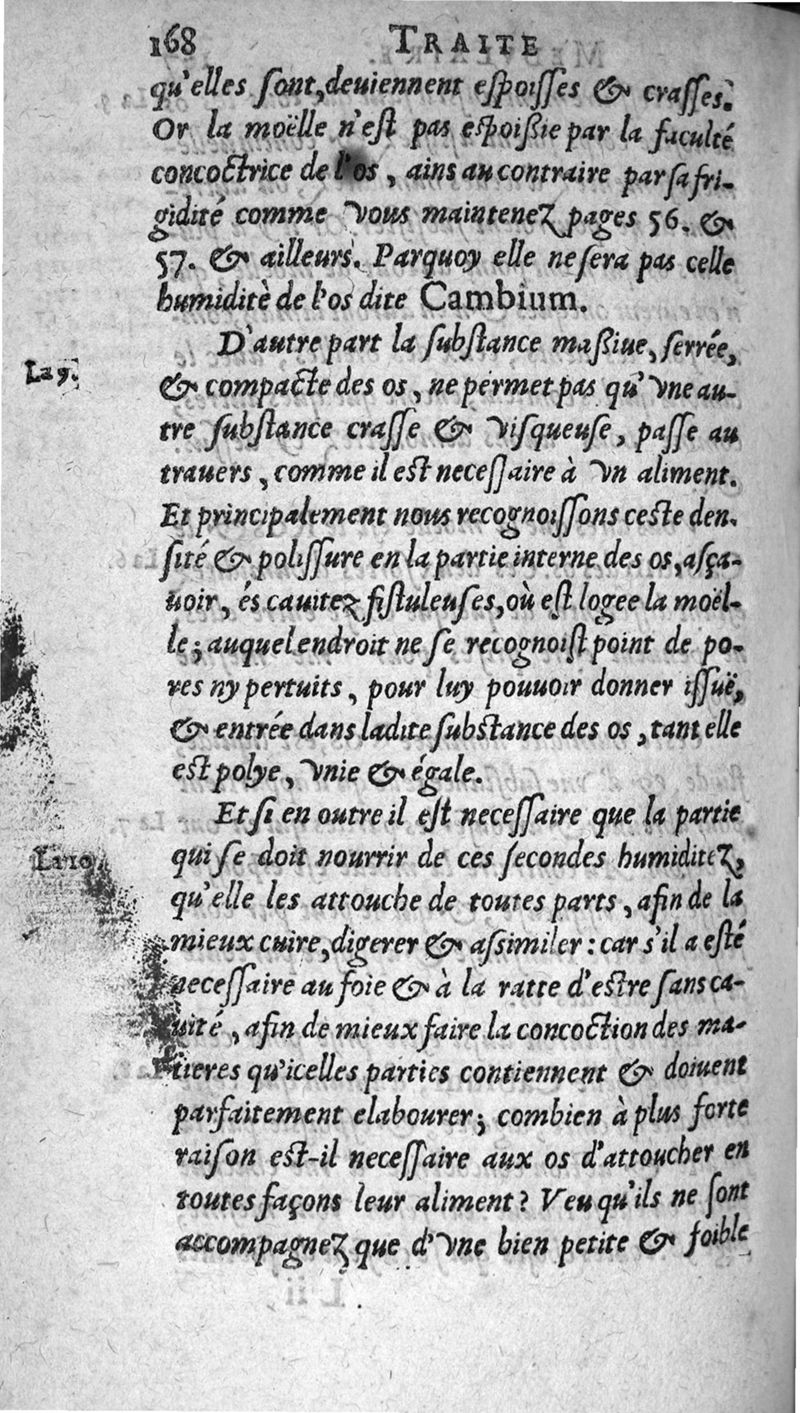 168 TRAITE
qu'elles sont, deuiennent espoisses & crasses.
Or la moëlle n'est pas espoissie par la faculté
concoctrice de l'os, ains au contraire par sa fri-
gidité comme vous maintenez pages 56. &
57. & ailleurs. Parquoy elle ne sera pas celle
humiditè de l'os dite Cambium.
D'autre part la substance massiue, serrée,
La 9.
& compacte des os, ne permet pas qu'vne au-
tre substance crasse & visqueuse, passe au
trauers, comme il est necessaire à vn aliment.
Et principalement nous recognoissons ceste den-
sité & polissure en la partie interne des os, asça-
uoir, és cauitez fistuleuses, où est logee la moël-
le; auquel endroit ne se recognoist point de po-
res ny pertuits, pour luy pouuoir donner issuë,
& entrée dans ladite substance des os, tant elle
est polye, vnie & égale.
Et si en outre il est necessaire que la partie
La 10.
qui se doit nourrir de ces secondes humiditez,
qu'elle les attouche de toutes parts, afin de la
mieux cuire, digerer & assimiler: car s'il a esté
necessaire au foie & à la ratte d'estre sans ca-
uité, afin de mieux faire la concoction des ma-
tieres qu'icelles parties contiennent & doiuent
parfaitement elabourer; combien à plus forte
raison est-il necessaire aux os d'attoucher en
toutes façons leur aliment? Veu qu'ils ne sont
accompagnez que d'vne bien petite & foible